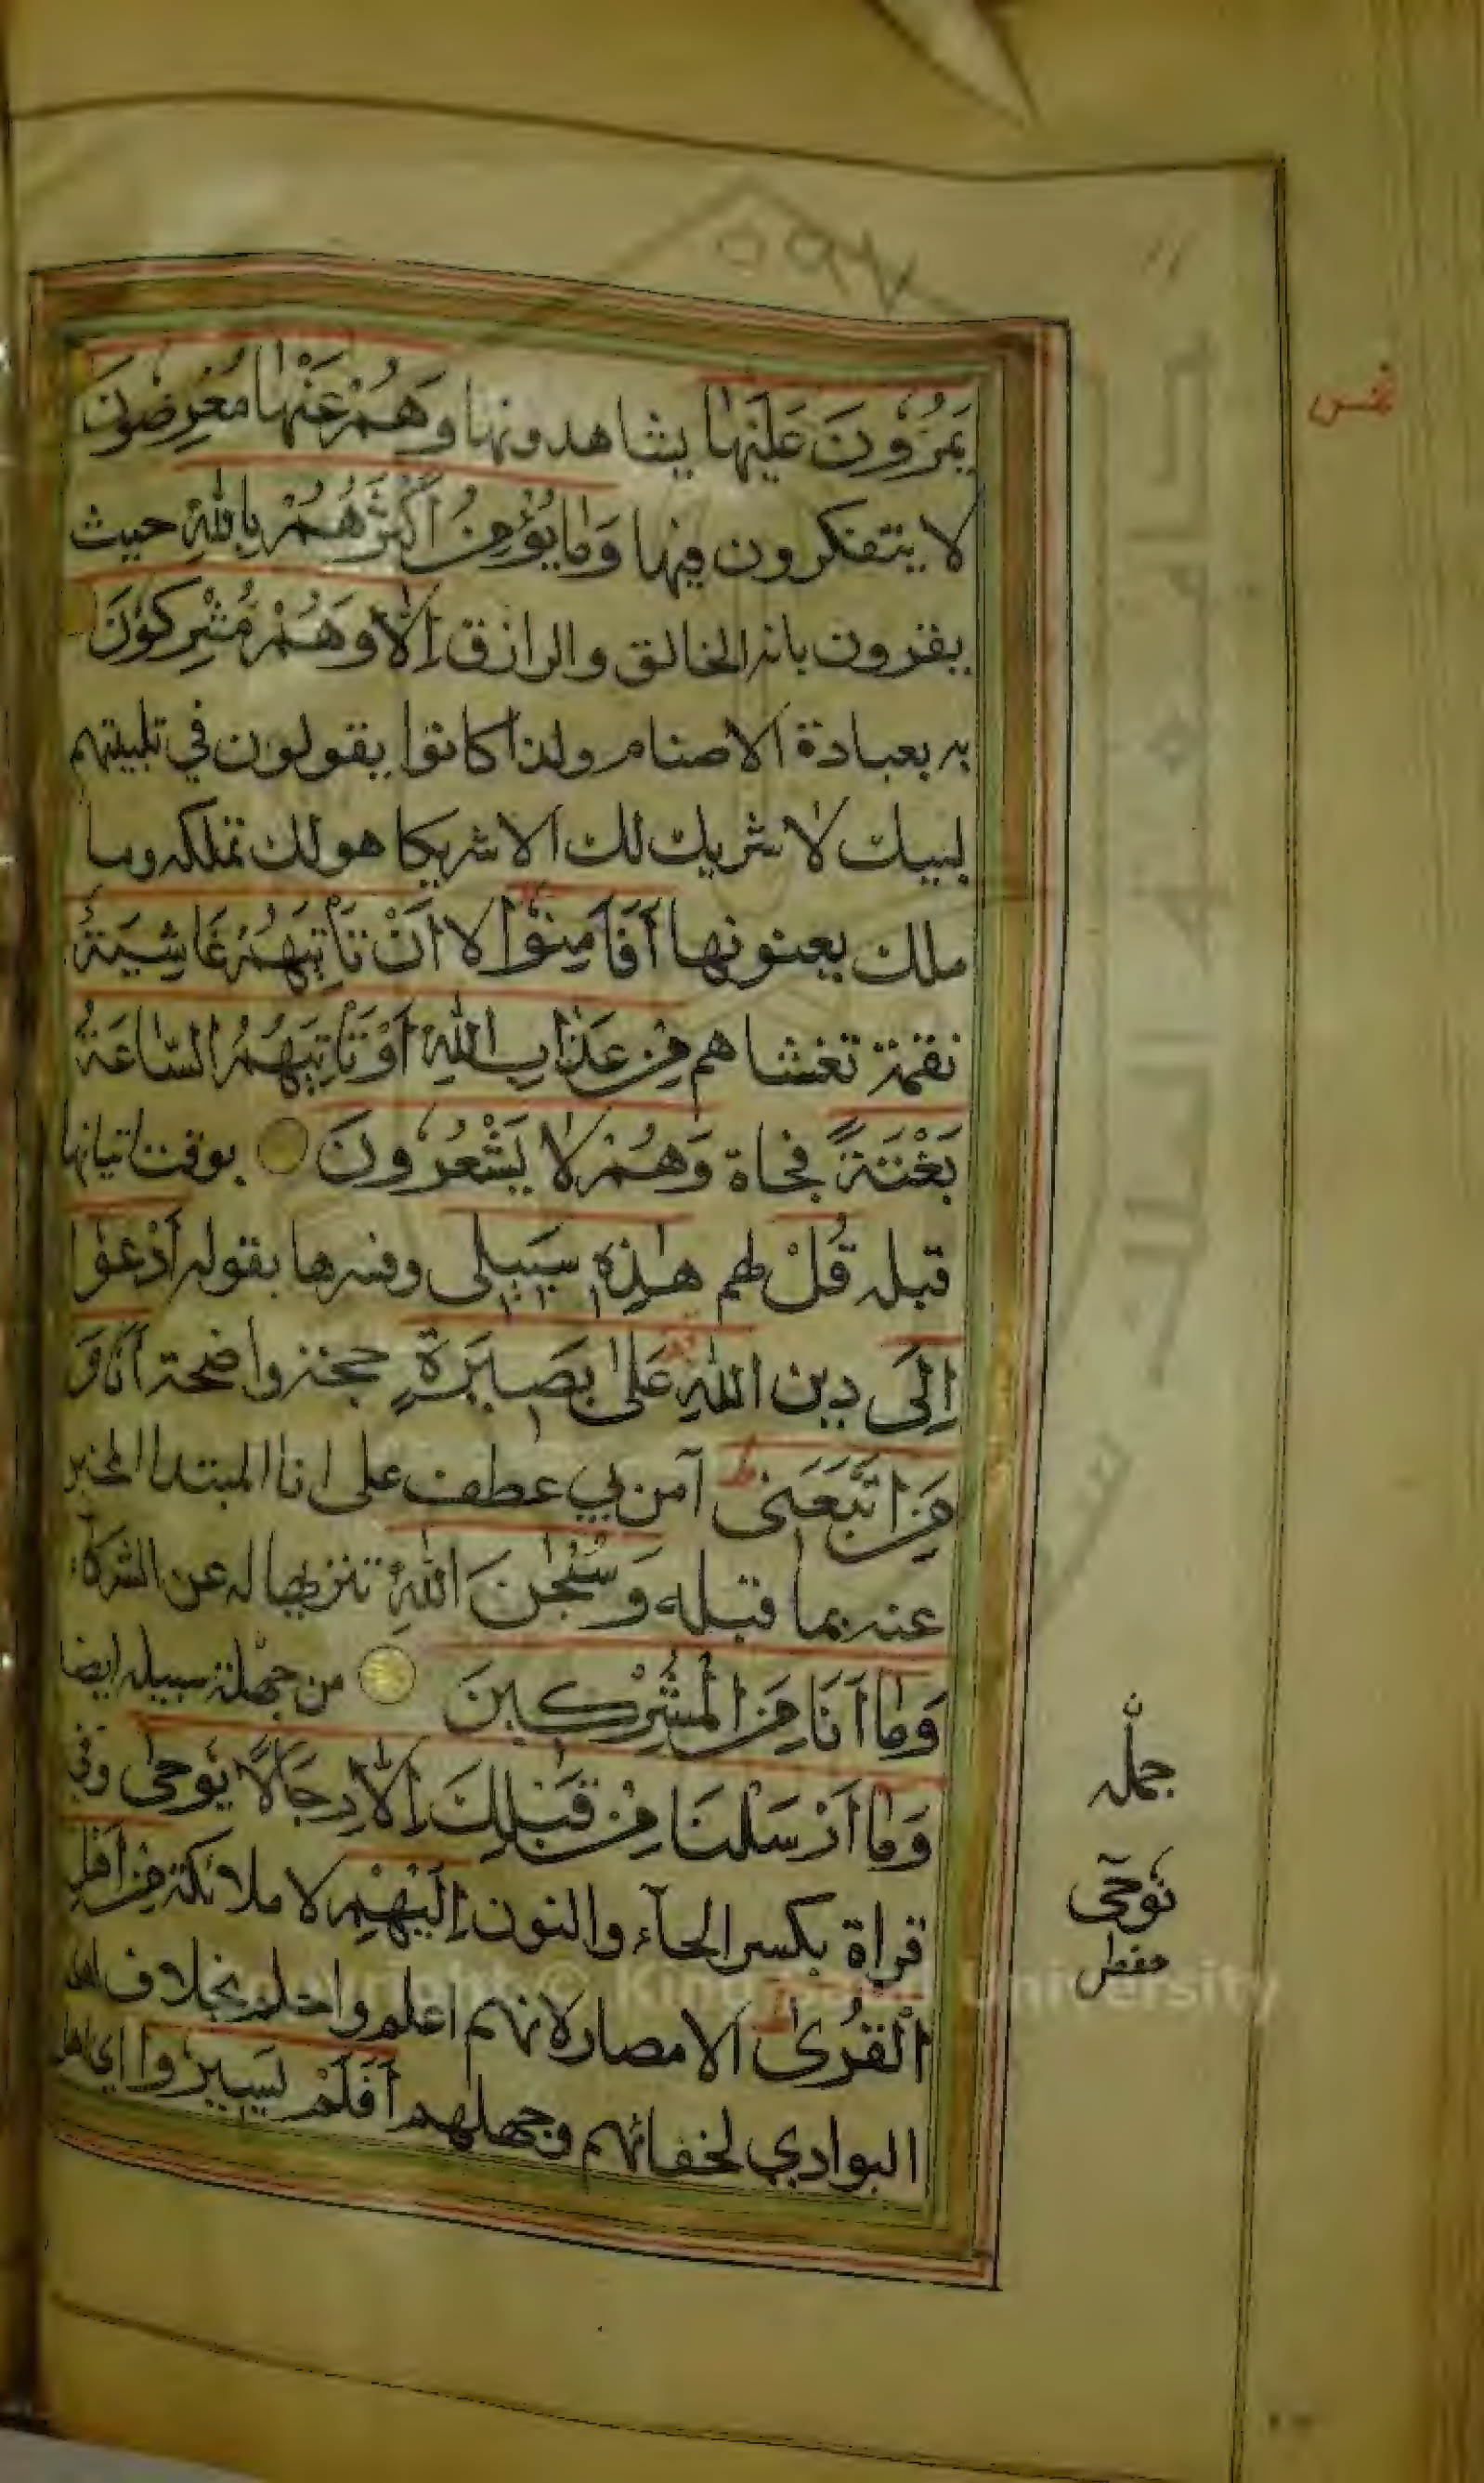 يَمُرُّونَ عَلَيْهَا يشاهدونها وَهُمْ عَنْهَا مُعْرِضُونَ
لا يتفكرون فيها وَمَا يُؤْمِنُ أَكْثَرُهُمْ بِاللّٰهِ حيث
يقرون بانه الخالق والرازق إِلَّا وَهُمْ مُشْرِكُونَ
به بعبادة الاصنام ولذا كانوا يقولون في تلبيتهم
لبيك لا شريك لك الا شريكا هو لك تملكه وما
ملك يعنونها أَفَأَمِنُوا لا أَنْ تَأْتِيَهُمْ غَاشِيَةٌ
نقمة تغشاهم مِنْ عَذَابِ اللّٰهِ أَوْ تَأْتِيَهُمُ السَّاعَةُ
بَغْتَةً فجاة وَهُمْ لَا يَشْعُرُونَ بوقت اتيانها
قبله قُلْ لهم هٰذِهِ سَبِيلِى وفسرها بقوله أَدْعُوا
إِلَى دين اللّٰهِ عَلىٰ بَصِيرَةٍ حجة واضحة أَنَا وَ
مَنِ اتَّبَعَنِى آمن بي عطف على انا المبتدا المخبر
عنه بما قبله وَسُبْحٰنَ اللّٰهِ تنزيها له عن الشركآء
وَمَا أَنَا مِنَ الْمُشْرِكِينَ من جملة سبيله ايضا
وَمَا أَرْسَلْنَا مِنْ قَبْلِكَ إِلَّا رِجَالًا يُوحىٰ وفي
قراة بكسر الحآء والنون إِلَيْهِمْ لا ملائكة مِنْ أَهْلِ
الْقُرىٰ الامصار لانهم اعلم واحلم بخلاف اهل
البوادي لجفائهم وجهلهم أَفَلَمْ يَسِيرُوا اي اهل
جمله
نوحى
حفص
٥٩٧
Copyright © King Saud University
جامعة الملك سعود